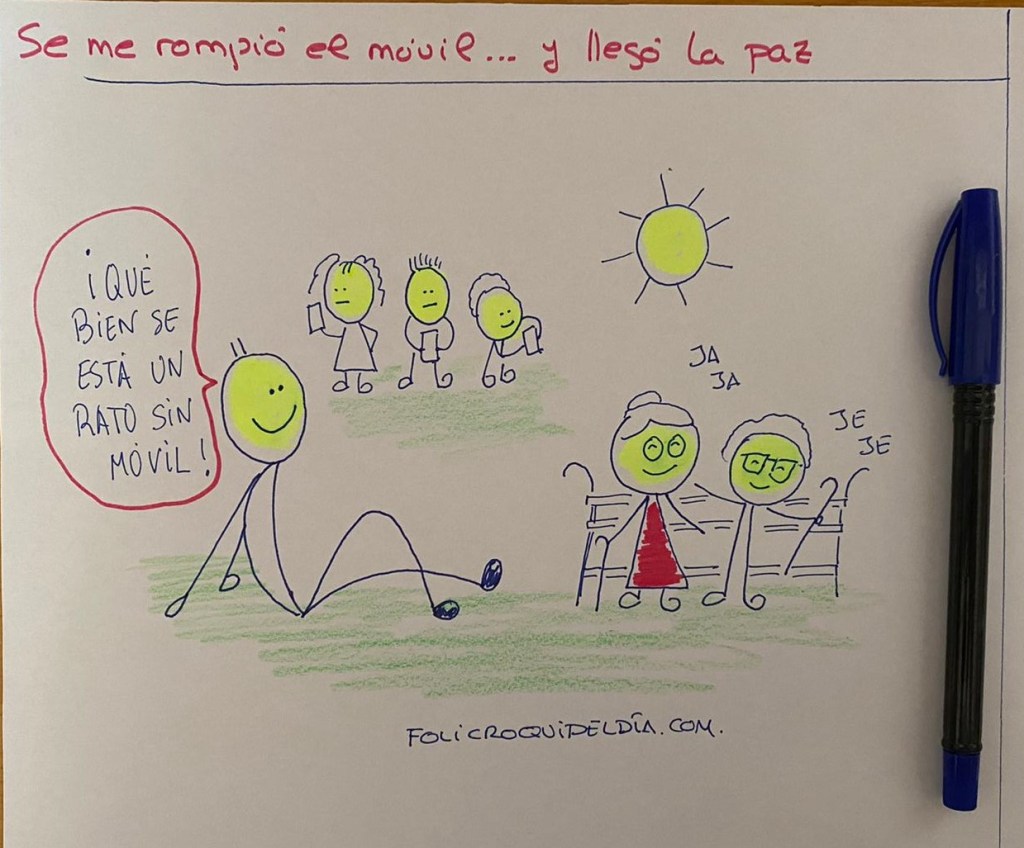 Se me rompió el móvil... y llegó la paz
¡QUÉ
BIEN SE
ESTÁ UN
RATO SIN
MÓVIL!
JA
JA
JE
JE
FOLICROQUIDELDÍA.COM.